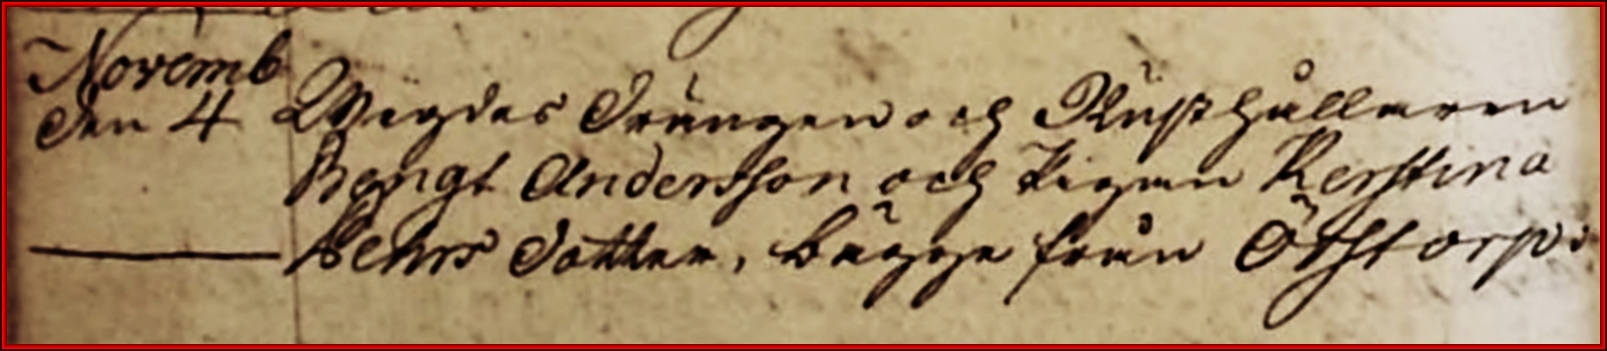 Novemb
den 4 Wigdes Drängen och Rusthållaren
Bengt Andersson och Pigan Kerstina
Pehrs Dotter, bägge från Östorp.